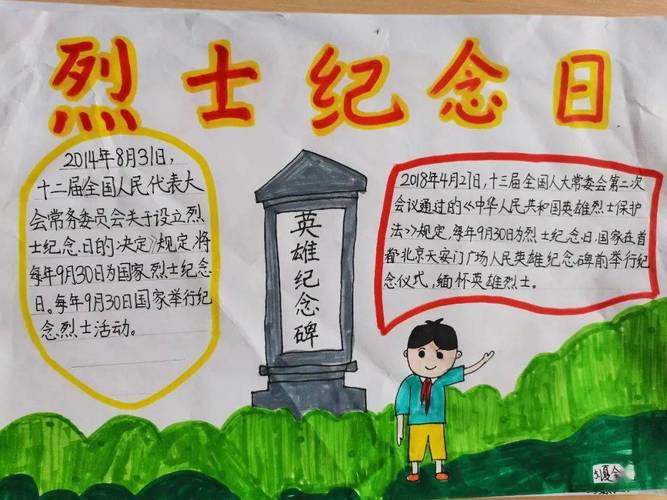 烈士纪念日
2014年8月31日，
十二届全国人民代表大
会常务委员会关于设立烈
士纪念日的《决定》规定，将
每年9月30日为国家烈士纪念
日。每年9月30日国家举行纪
念烈士活动。
英雄纪念碑
2018年4月27日，十三届全国人大常委会第二次
会议通过的《中华人民共和国英雄烈士保护
法》规定，每年9月30日为烈士纪念日，国家在首
都北京天安门广场人民英雄纪念碑前举行纪
念仪式，缅怀英雄烈士。